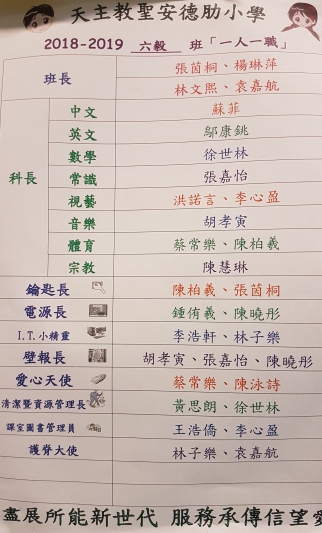 天主教聖安德肋小學
2018-2019 六毅 班「一人一職」
班長 張茵桐、楊琳萍
林文熙、袁嘉航
科長 中文 蘇菲
英文 鄔康銚
數學 徐世林
常識 張嘉怡
視藝 洪諾言、李心盈
音樂 胡孝寅
體育 蔡常樂、陳柏羲
宗教 陳慧琳
鑰匙長 陳柏羲、張茵桐
電源長 鍾侑羲、陳曉彤
I.T.小精靈 李浩軒、林子樂
壁報長 胡孝寅、張嘉怡、陳曉彤
愛心天使 蔡常樂、陳泳詩
清潔暨資源管理長 黃思朗、徐世林
課室圖書管理員 王浩僑、李心盈
護脊大使 林子樂、袁嘉航
盡展所能新世代 服務承傳信望愛